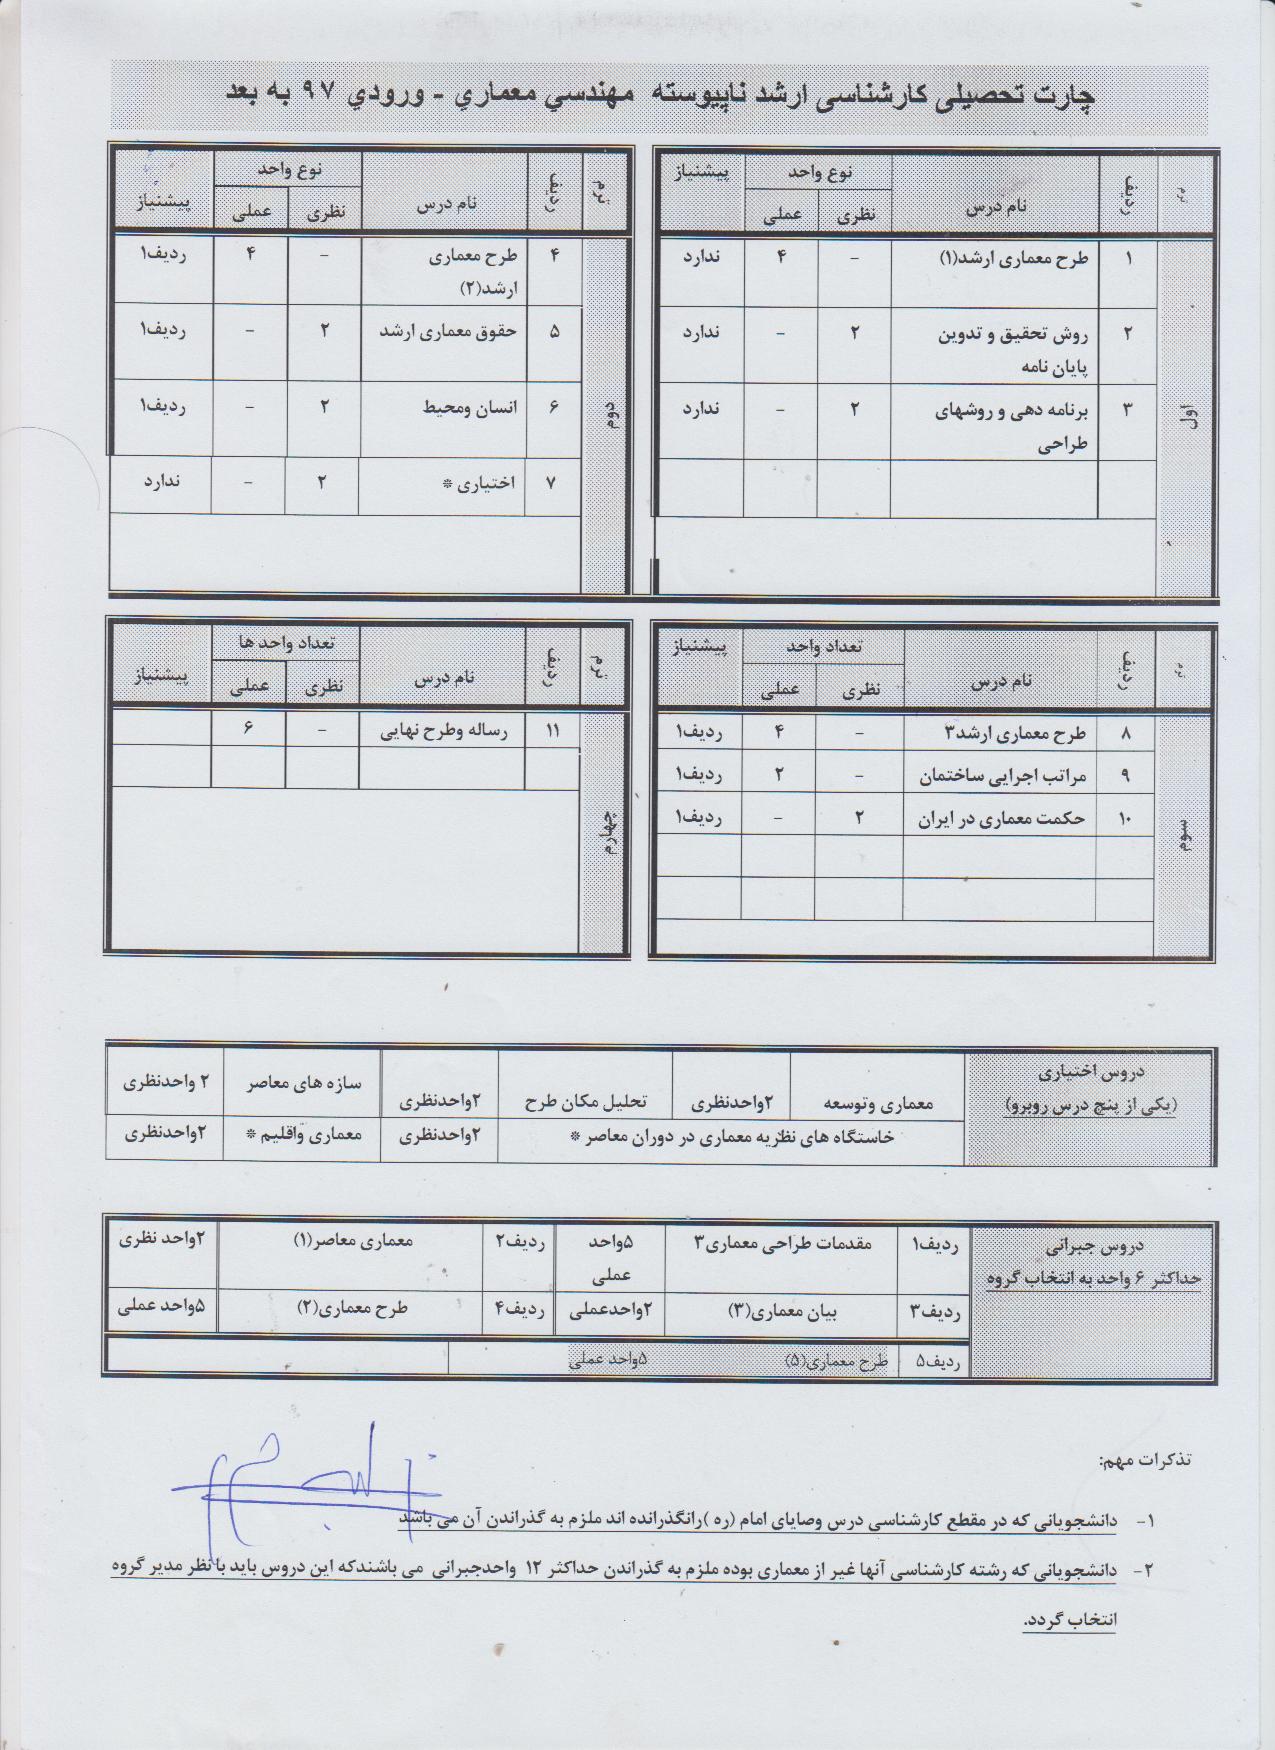 چارت تحصیلی کارشناسی ارشد ناپیوسته مهندسي معماري - ورودي ۹۷ به بعد
ترم ردیف نام درس نوع واحد پیشنیاز
نظری عملی
اول
۱ طرح معماری ارشد(۱) - ۴ ندارد
۲ روش تحقیق و تدوین ۲ - ندارد
پایان نامه
۳ برنامه دهی و روشهای ۲ - ندارد
طراحی
ترم ردیف نام درس نوع واحد پیشنیاز
نظری عملی
دوم
۴ طرح معماری - ۴ ردیف۱
ارشد(۲)
۵ حقوق معماری ارشد ۲ - ردیف۱
۶ انسان ومحیط ۲ - ردیف۱
۷ اختیاری * ۲ - ندارد
ترم ردیف نام درس تعداد واحد پیشنیاز
نظری عملی
سوم
۸ طرح معماری ارشد۳ - ۴ ردیف۱
۹ مراتب اجرایی ساختمان - ۲ ردیف۱
۱۰ حکمت معماری در ایران ۲ - ردیف۱
ترم ردیف نام درس تعداد واحد ها پیشنیاز
نظری عملی
چهارم
۱۱ رساله وطرح نهایی - ۶
دروس اختیاری
(یکی از پنج درس روبرو)
معماری وتوسعه ۲واحدنظری تحلیل مکان طرح ۲واحدنظری سازه های معاصر ۲ واحدنظری
خاستگاه های نظریه معماری در دوران معاصر * ۲واحدنظری معماری واقلیم * ۲واحدنظری
دروس جبرانی
حداکثر ۶ واحد به انتخاب گروه
ردیف۱ مقدمات طراحی معماری۳ ۵واحد عملی ردیف۲ معماری معاصر(۱) ۲واحد نظری
ردیف۳ بیان معماری(۳) ۲واحدعملی ردیف۴ طرح معماری(۲) ۵واحد عملی
ردیف۵ طرح معماری(۵) ۵واحد عملی
تذکرات مهم:
۱- دانشجویانی که در مقطع کارشناسی درس وصایای امام (ره )رانگذرانده اند ملزم به گذراندن آن می باشد
۲- دانشجویانی که رشته کارشناسی آنها غیر از معماری بوده ملزم به گذراندن حداکثر ۱۲ واحدجبرانی می باشندکه این دروس باید با نظر مدیر گروه
انتخاب گردد.